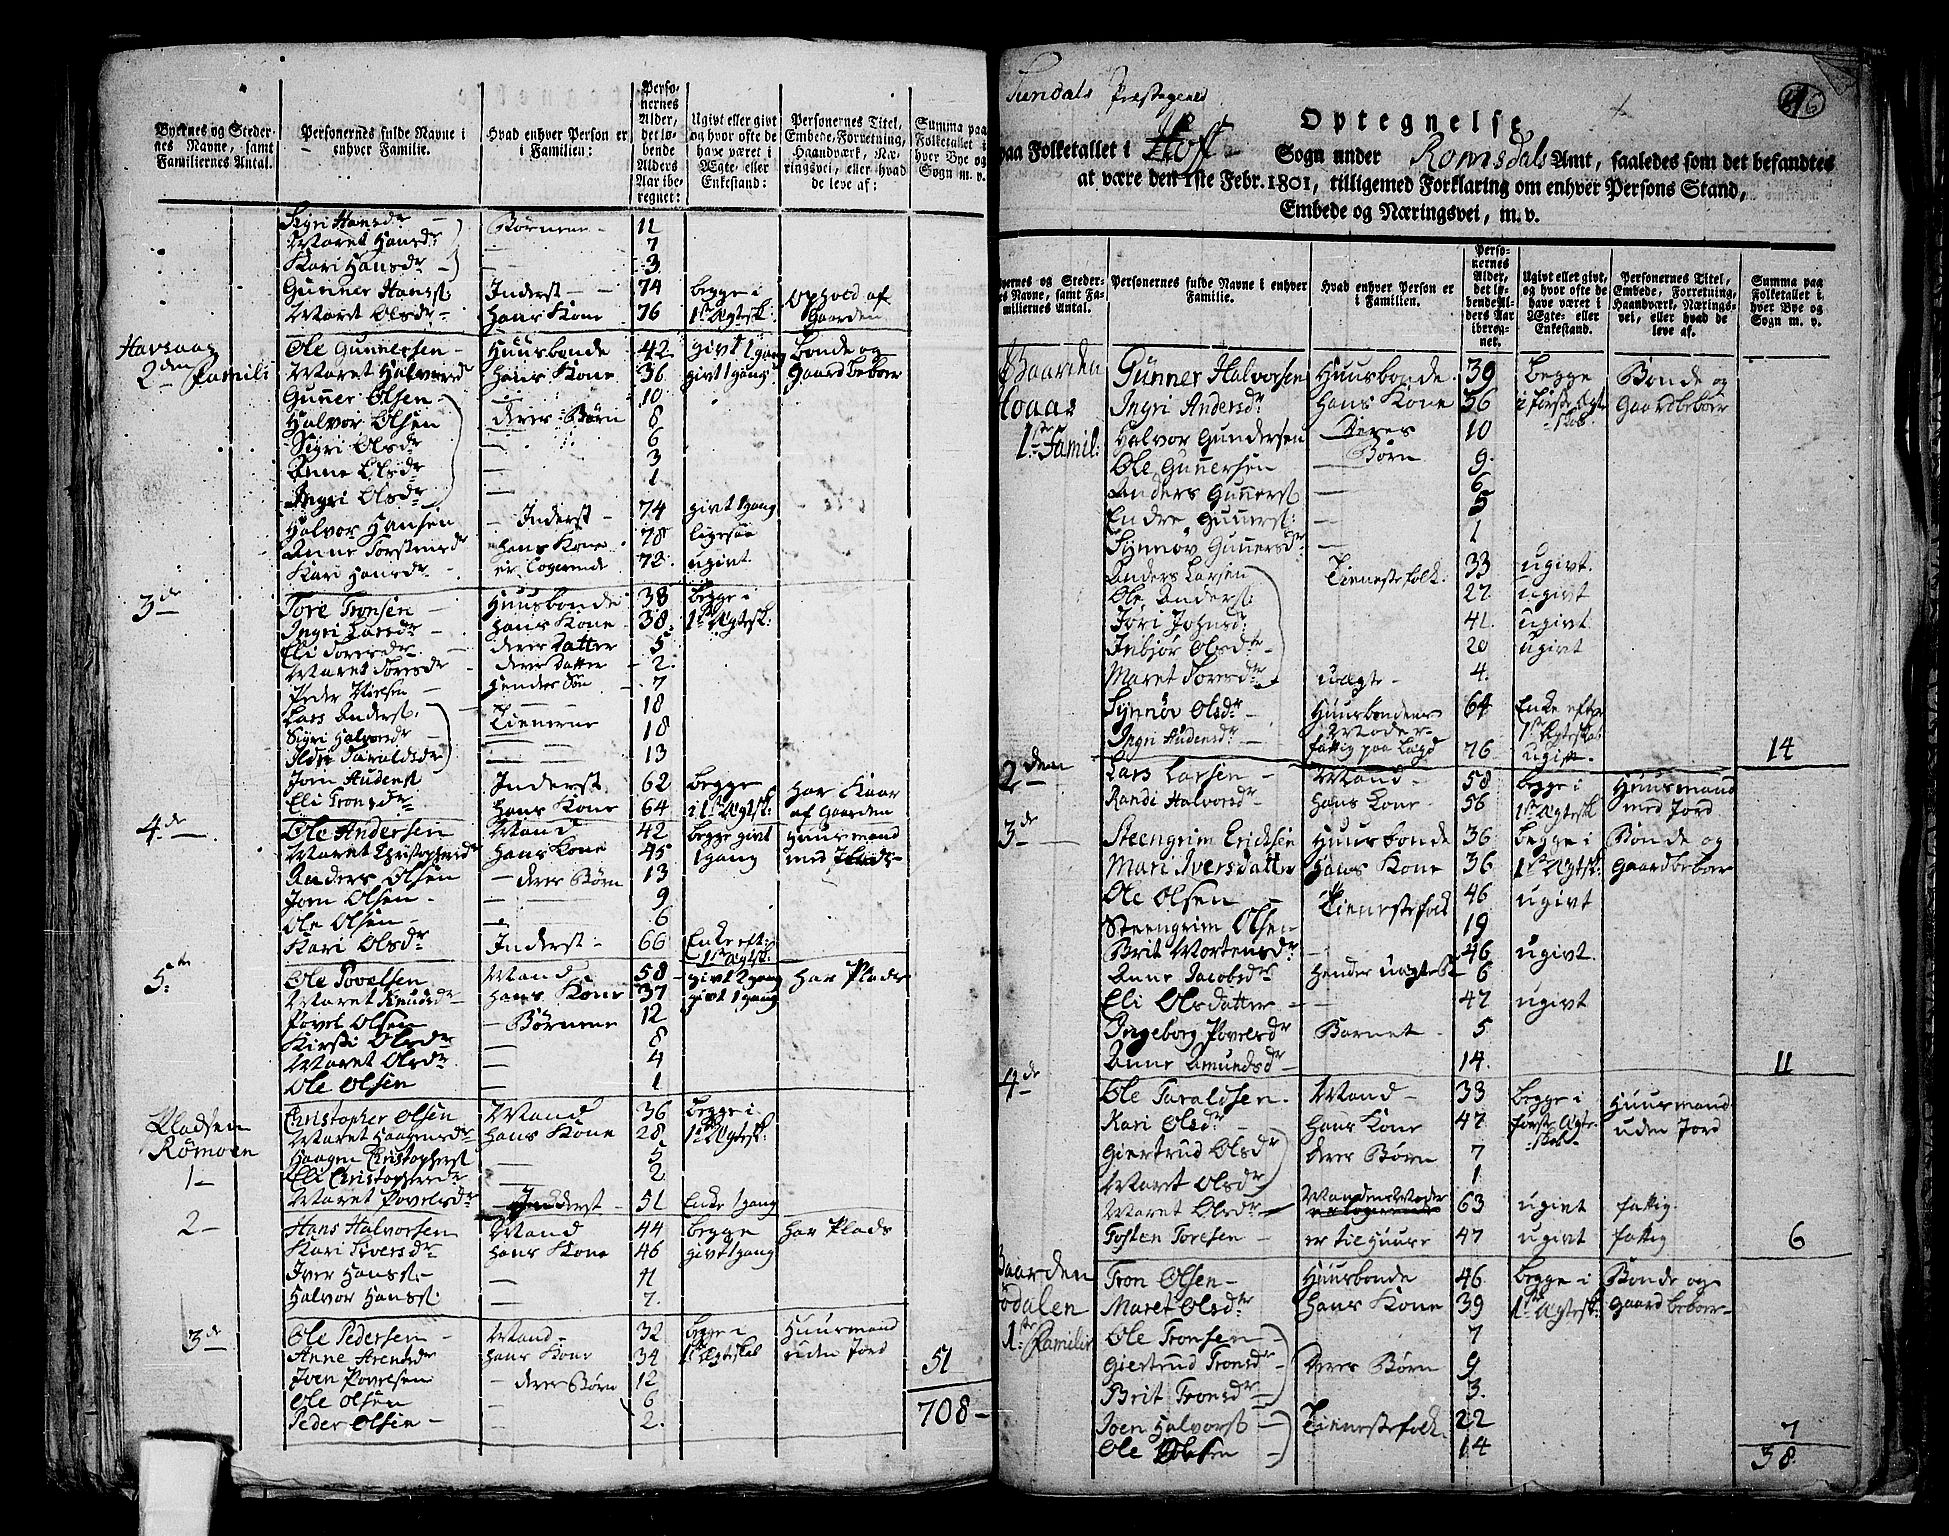 Byernes og Steder- nes Navne, samt Familiernes Antal. | Personernes fulde Navne i enhver Familie. | Hvad enhver Person er i Familien: | Perso- nernes Alder, det lø- bende Alders Aar ibe- regnet: | Ugivt eller givt og hvor ofte de have været i Ægte- eller Enkestand: | Personernes Titel, Embede, Forretning, Haandværk, Næ- ringsvei, eller hvad de leve af: | Summa paa Folketallet i hver Bye og Sogn m. v.
Sigri Hansdr – Børnene – 11
Maret Hansdr – 7
Kari Hansdr – 3
Gunner Hans: Inderst – 74 begge i Ophold af
Maret Olsdr – Hans Kone 76 1ste Ægtesk: Gaarden
Havsaas Ole Gunnersen – Huusbonde 42 givt 1 gang bonde og
2den Famili Maret Halvorsdr Hans Kone 36 givt 1 gang Gaardbeboer
Gunner Olsen – 10
Halvor Olsen deres Børn 8
Sigri Olsdr – 6
Anne Olsdr – 3
Ingri Olsdr – 1
Halvor Hansen – Inderst – 74 givt 1 gang
Anne Torstensdr Hans Kone 78 ligesaa
Kari Hansdr – er Logerende 73 ugivt
3de Tore Tronsen – Huusbonde 38 begge i
Ingri Larsdr – Hans Kone 38 1ste Ægtesk:
Eli Toresdr – deres Datter 5
Maret Toresdr deres Datter – 2
Peder Nielsen – Hendes Søn – 7
Lars Anders: – 18
Sigri Halvorsdr Tienerne 18
Ildri Taraldsdr – 13
Joen Audens: Inderst 62 Begge Har Kaar
Eli Tronsdr Hans Kone 64 i 1ste Ægtesk: af Gaarden
4de Ole Andersen Mand 42 begge givt Huusmand
Maret Christophersdr Hans Kone 45 1 gang med Plads –
Anders Olsen – deres Børn 13
Joen Olsen – 9
Ole Olsen – 6
Kari Olsdr Inderst – 66 Enke eft: 1ste Ægtesk:
5te Ole Povelsen Mand 58 givt 2 gang har Plads
Maret Knudsdr – Hans Kone 37 givt 1 gang
Povel Olsen – Børnene 12
Kirsti Olsdr – 8
Maret Olsdr – 4
Ole Olsen – 1
Pladsen Christopher Olsen Mand 36 begge i
Rømoen Maret Haagensdr Hans Kone 28 1ste Ægtesk:
Haagen Christophers: – 5
1– Eli Christophersdr – 2
Maret Povelsdr – Inderst – 51 Enke 1 gang
2– Hans Halvorsen Mand 44 begge har Plads
Kari Iversdr Hans Kone 46 givt 1 gang
Iver Hanss: – 11
Halvor Hanss: – 7
3de Ole Pedersen – Mand – 32 begge i Huusmand
Anne Arendsdr Hans Kone 34 1ste Ægteskab uden Jord 51
Joen Povelsen – deres Børn 12
Ole Olsen – 6
Peder Olsen – 2
708 –
Sundals Præstegield
46
Optegnelse
paa Folketallet i Hoft Sogn under Romsdals Amt, saaledes som det befandtes
at være den 1ste Febr. 1801, tilligemed Forklaring om enhver Persons Stand,
Embede og Næringsvei, m. v.
Byernes og Steder- nes Navne, samt Fa- miliernes Antal. | Personernes fulde Navne i enhver Familie. | Hvad enhver Person er i Familien. | Perso- nernes Alder, det lø- bende Al- ders Aar iberegnet. | Ugivt eller givt, og hvor ofte de have været i Ægte- eller Enkestand. | Personernes Titel, Embede, Forretning, Haandværk, Nærings- vei, eller hvad de leve af. | Summa paa Folketallet i hver Bye og Sogn m. v.
Gaarden Gunner Halvorsen Huusbonde 39 Begge Bonde og
Hoaas Ingri Andersdr Hans Kone 36 i første Ægteskab Gaardbeboer
1ste Famil: Halvor Gundersen Deres 10
Ole Gunnersen – Børn 9
Anders Gunners: – 6
Endre Gunners: – 5
Synnøv Gunnersdr – 1
Anders Larsen Tienestefolk 33 ugivt
Ole Anders: 22 ugivt
Jori Johnsd: 41 ugivt
Inbjør Olsdr – 20 ugivt
Maret Toresdr uægte – 4
Synnøv Olsdr – Huusbondens Moder – 64 Enke efter 1ste Ægteska:
Ingri Audensdr – fattig paa Lægd 76 ugift 14
2den Lars Larsen – Mand – 58 begge i Huusmand
Randi Halvorsdr – Hans Kone – 56 1ste Ægtesk: med Jord
3de Steengrim Erichsen Huusbonde 36 begge i Bonde og
Mari Iversdatter Hans Kone 36 1ste Ægtesk: Gaardbeboer
Ole Olsen – Tienestefolk 46 ugivt
Steengrim Olsen – 19
Brit Mortensdr 46 ugivt
Anne Jacobsdr Hendes uægte 6
Eli Olsdatter – 42 ugivt
Ingeborg Povelsdr Barnet – 5
Anne Amundsdr – 14 11
4de Ole Taraldsen – Mand – 33 begge i Huusmand
Kari Olsdr Hans Kone 42 første Ægteskab uden Jord
Giertrud Olsdr deres Børn 7
Maret Olsdr 1
Maret Olsdr – Mandens Moder 63 ugivt fattig
Tosten Toresen – er til Huuse 47 ugivt fattig 6
Gaarden Tron Olsen – Huusbonde 46 begge i Bonde og
Ødalen Maret Olsdr Hans Kone 39 1ste Ægtesk: Gaardbeboer –
1ste Familie Ole Tronsen – 7
Giertrud Tronsdr – Deres Børn 9
Brit Tronsdr – 3
Joen Halvors: – Tienestefolk 22
Ole – 14 7
38